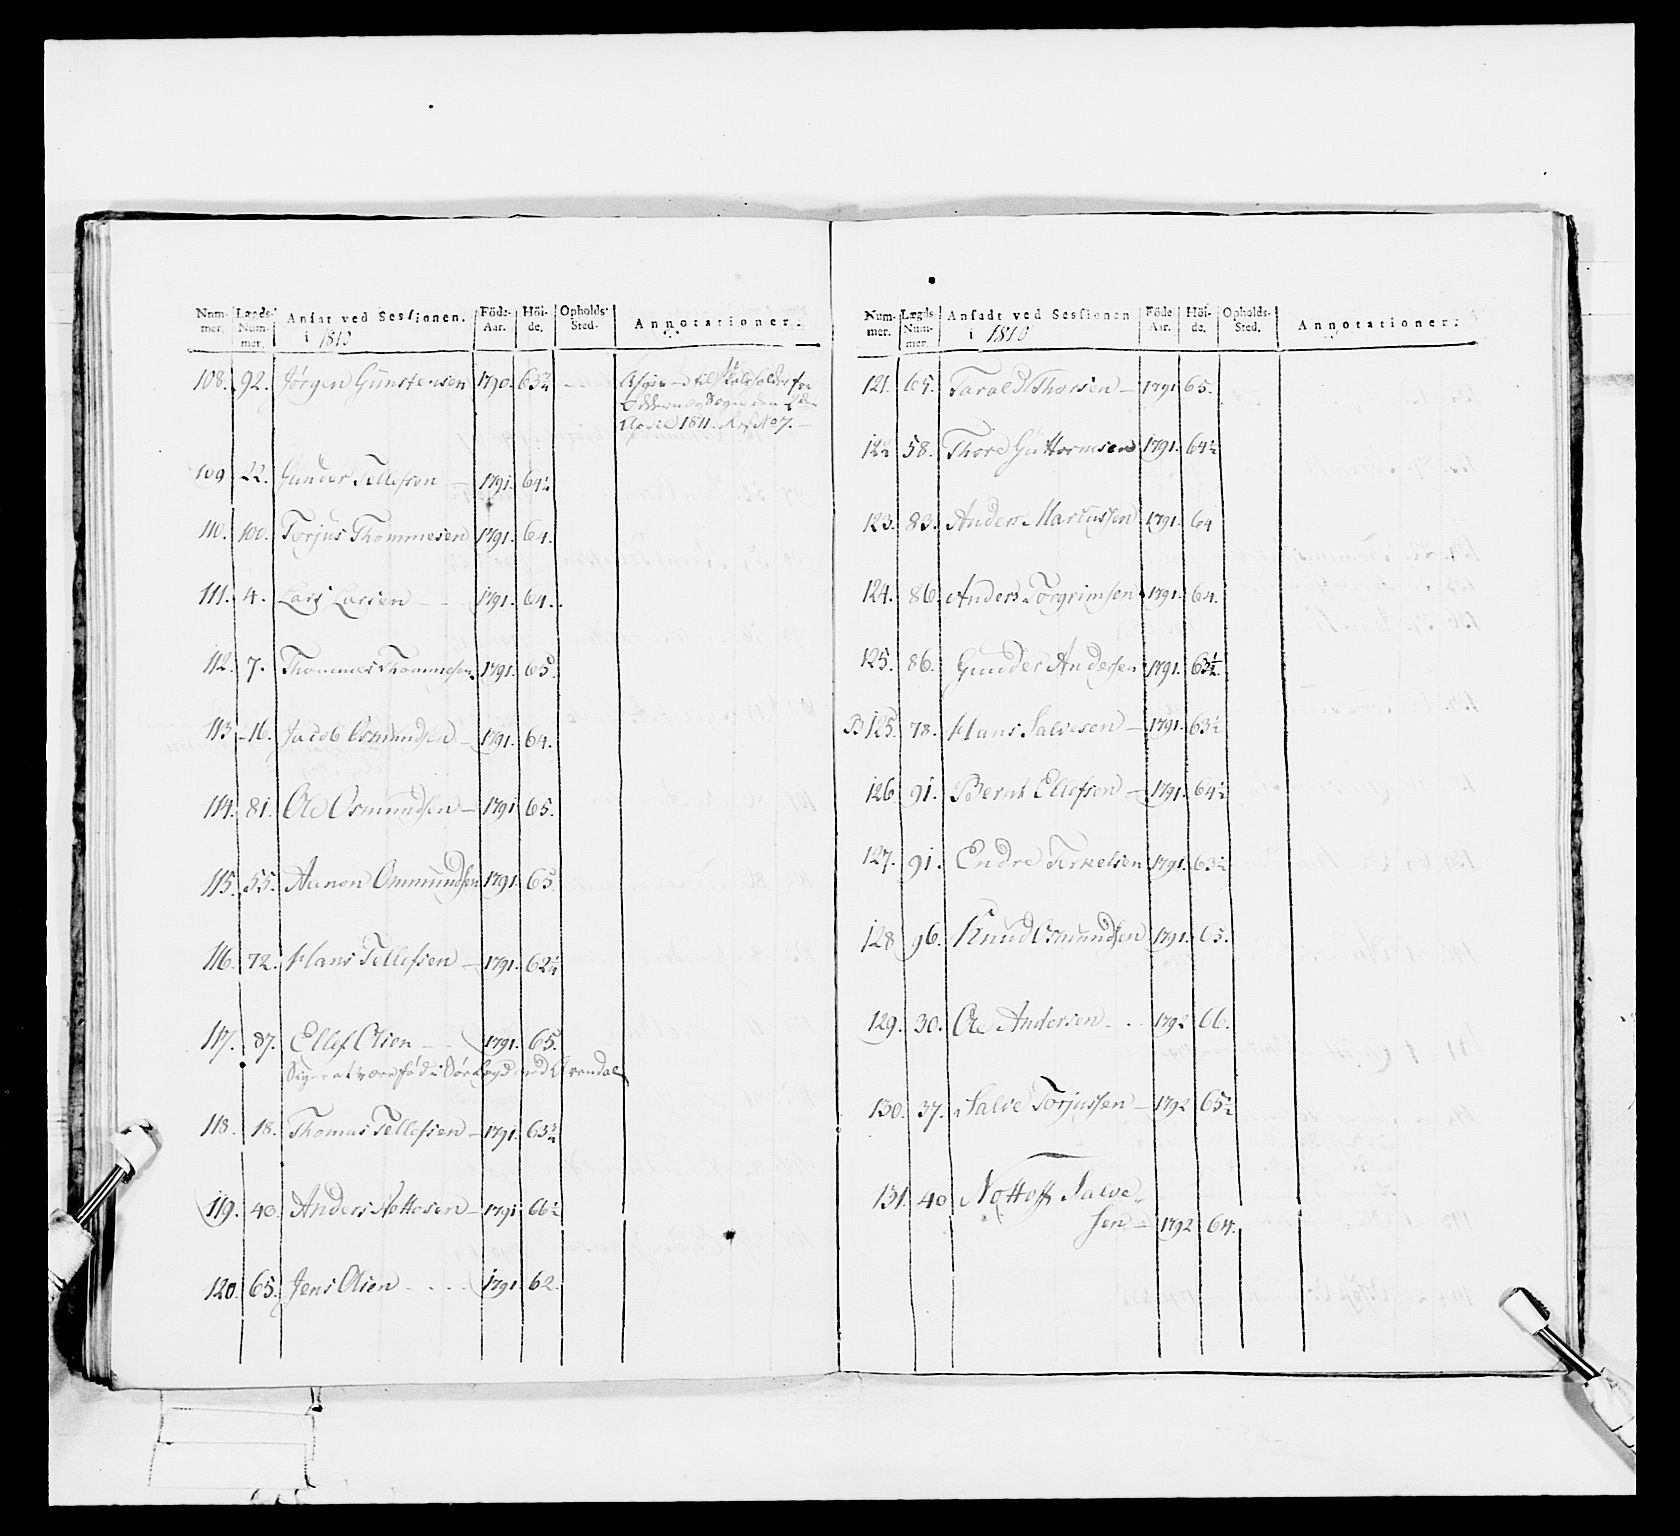 Num- Lægds- Ansat ved Sessionen. Föde- Höi- Opholds- Annotationer.
mer. Num- i 1810 Aar. de. Sted.
mer.
108. 92. Jörgen Gunstensen 1790. 63¾
Oddernes Sogn den 2den
April 1811. No 7.
109 22. Gunder Tellefsen 1791. 64½
110. 100. Torjus Thommesen 1791. 64.
111. 4. Lars Larsen 1791. 64.
112. 7. Thommes Thommesen 1791. 65.
113 16. Jacob Osmundsen 1791. 64.
114. 81. Ole Osmundsen 1791 65.
115. 55. Aanon Ommundsen 1791. 65.
116. 72. Hans Tellefsen 1791. 62¼
117. 87. Ellef Olsen 1791. 65.
Siger at være föd i
118. 18. Thomas Tellefsen 1791. 63¾
119. 40. Anders Nottosen 1791 66½
120. 65. Jens Olsen 1791 62.
Num- Lægds- Ansadt ved Sessionen Föde Höi- Opholds- Annotationer:
mer. Num- i 1810 Aar. de. Sted.
mer.
121. 65. Tarald Thorsen 1791 65.
122 58. Thore Guttormsen 1791. 64½
123. 83. Anders Marcussen 1791. 64
124. 86. Anders Torgrimsen 1791. 64.
125. 86. Gunder Andersen 1791. 63½.
B 125. 78. Hans Salvesen 1791. 63½
126 91. Bernt Ellefsen 1791. 64½
127. 91. Endre Terkelsen 1791. 63½
128 96. Knud Osmundsen 1791. 65.
129. 30. Ole Andersen 1792 66.
130. 37. Salve Torjussen 1792 65½
131. 40 Nottoff Salve-
sen 1792 64.